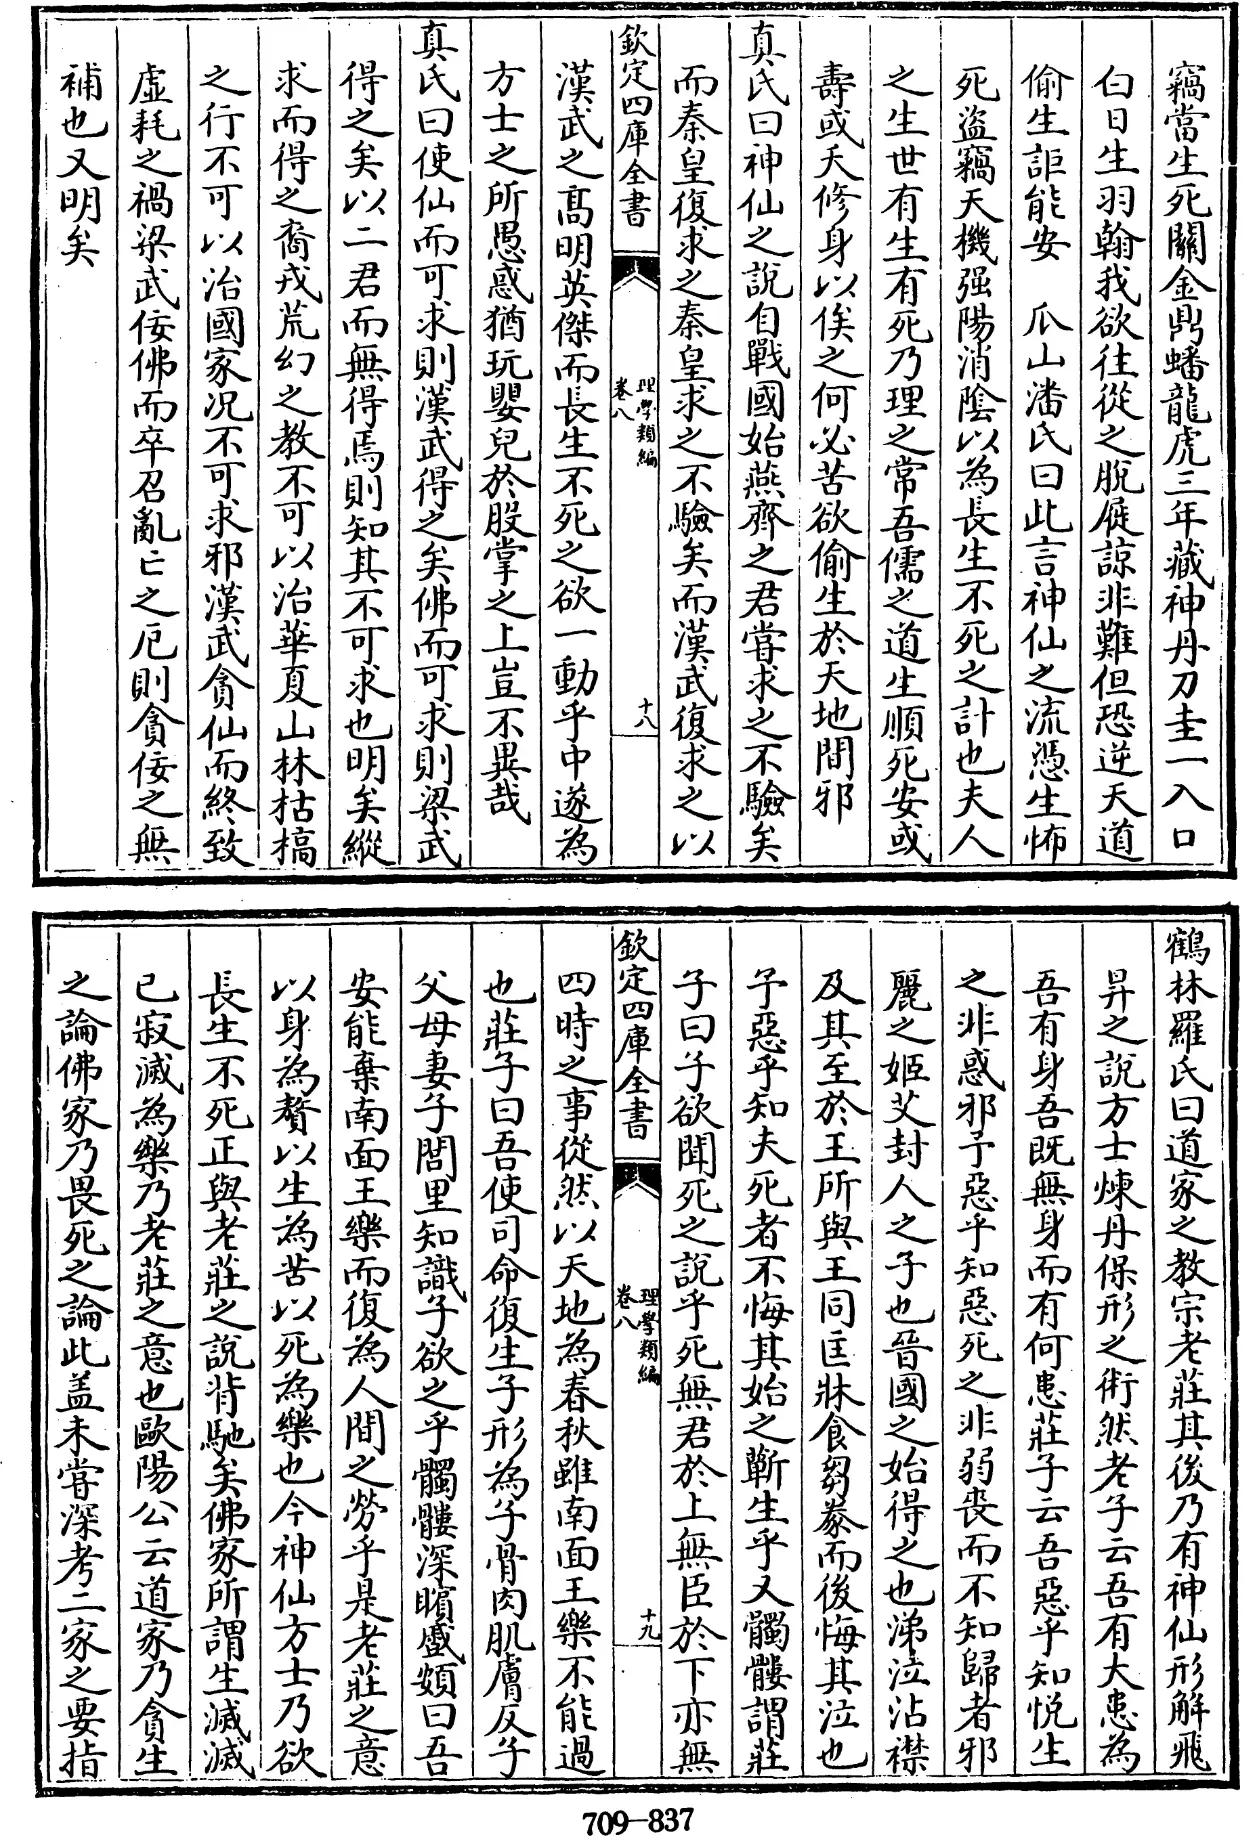 竊當生死關金鼎蟠龍虎三年藏神丹刀圭一入口
白日生羽翰我欲往從之脫屣諒非難但恐逆天道
偷生詎能安　瓜山潘氏曰此言神仙之流憑生怖
死盜竊天機强陽消陰以為長生不死之計也夫人
之生世有生有死乃理之常吾儒之道生順死安或
壽或夭修身以俟之何必苦欲偷生於天地間邪
真氏曰神仙之說自戰國始燕齊之君嘗求之不驗矣
而秦皇復求之秦皇求之不驗矣而漢武復求之以
欽定四庫全書
理學類編
卷八
十八
漢武之髙明英傑而長生不死之欲一動乎中遂為
方士之所愚惑猶玩嬰兒於股掌之上豈不異哉
真氏曰使仙而可求則漢武得之矣佛而可求則梁武
得之矣以二君而無得焉則知其不可求也明矣縱
求而得之裔戎荒幻之教不可以治華夏山林枯槁
之行不可以治國家况不可求邪漢武貪仙而終致
虛耗之禍梁武佞佛而卒召亂亡之厄則貪佞之無
補也又明矣
鶴林羅氏曰道家之教宗老莊其後乃有神仙形解飛
昇之說方士煉丹保形之術然老子云吾有大患為
吾有身吾既無身而有何患莊子云吾惡乎知悅生
之非惑邪予惡乎知惡死之非弱喪而不知歸者邪
麗之姬艾封人之子也晉國之始得之也涕泣沾襟
及其至於王所與王同匡牀食芻豢而後悔其泣也
予惡乎知夫死者不悔其始之蘄生乎又髑髏謂莊
子曰子欲聞死之說乎死無君於上無臣於下亦無
欽定四庫全書
理學類編
卷八
十九
四時之事從然以天地為春秋雖南面王樂不能過
也莊子曰吾使司命復生子形為子骨肉肌膚反子
父母妻子閭里知識子欲之乎髑髏深矉蹙頞曰吾
安能棄南面王樂而復為人間之勞乎是老莊之意
以身為贅以生為苦以死為樂也今神仙方士乃欲
長生不死正與老莊之說背馳矣佛家所謂生滅滅
已寂滅為樂乃老莊之意也歐陽公云道家乃貪生
之論佛家乃畏死之論此盖未嘗深考二家之要指
709-837